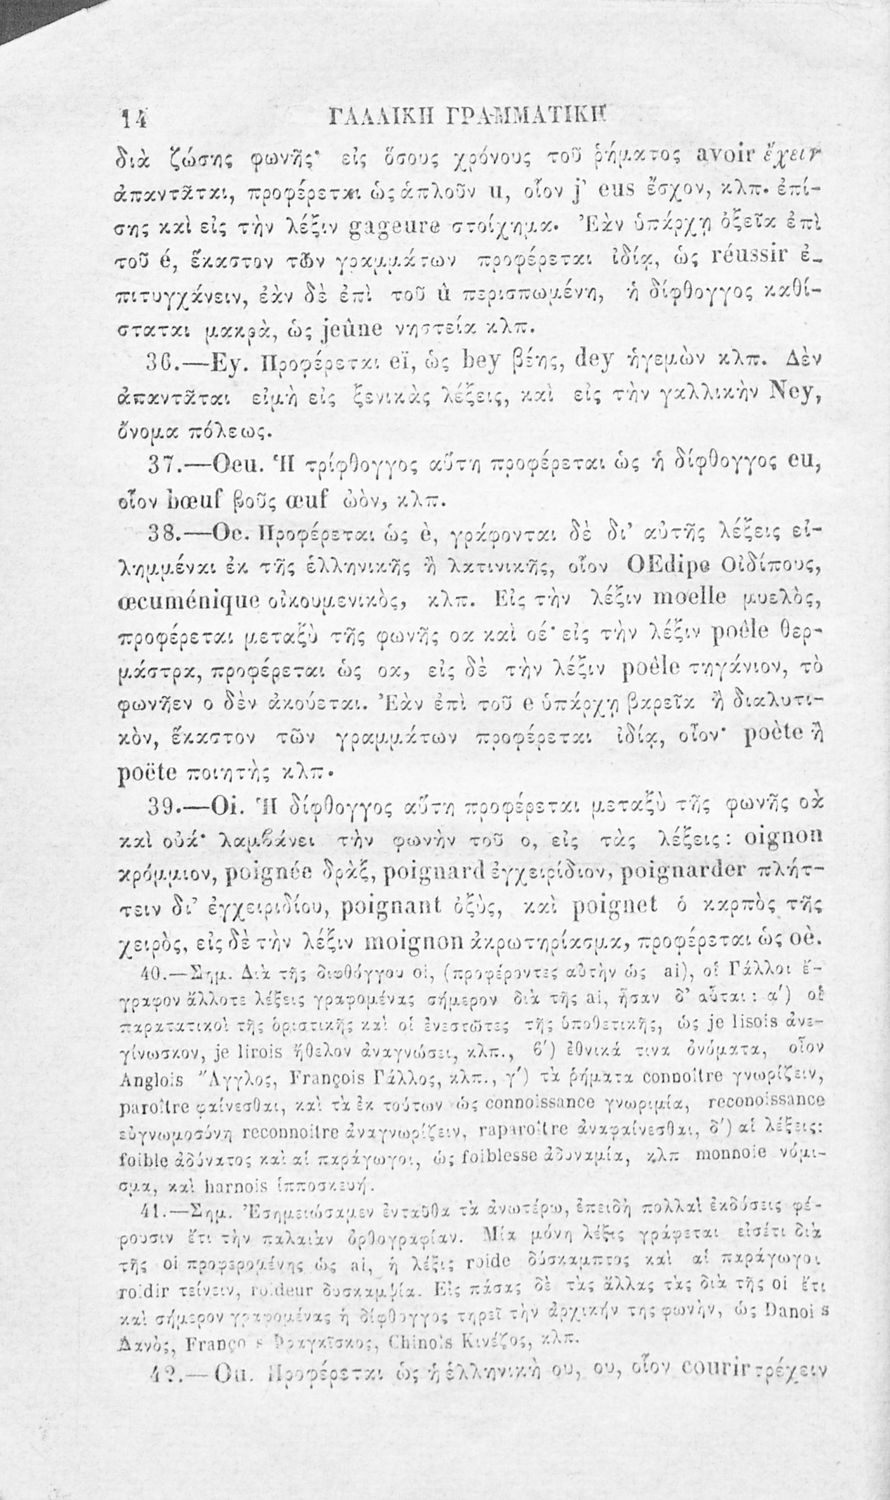 14 ΓΑΛΛΙΚΗ ΓΡΑΜΜΑΤΙΚΗ
διὰ ζώσης φωνῆς· εἰς ὅσους χρόνους τοῦ ῥήματος avoir ἔχειν
ἀπαντᾶται, προφέρεται ὡς ἁπλοῦν u, οἷον j' eus ἔσχον, κλπ. ἐπί-
σης καὶ εἰς τὴν λέξιν gageure στοίχημα. Ἐὰν ὑπάρχῃ ὀξεῖα ἐπὶ
τοῦ é, ἕκαστον τῶν γραμμάτων προφέρεται ἰδίᾳ, ὡς réussir ἐ-
πιτυγχάνειν, ἐὰν δὲ ἐπὶ τοῦ û περισπωμένη, ἡ δίφθογγος καθί-
σταται μακρὰ, ὡς jeûne νηστεία κλπ.
36.—Ey. Προφέρεται eï, ὡς bey βέης, dey ἡγεμὼν κλπ. Δὲν
ἀπαντᾶται εἰμὴ εἰς ξενικὰς λέξεις, καὶ εἰς τὴν γαλλικὴν Ney,
ὄνομα πόλεως.
37.—Oeu. Ἡ τρίφθογγος αὕτη προφέρεται ὡς ἡ δίφθογγος eu,
οἷον bœuf βοῦς œuf ὠὸν, κλπ.
38.—Oe. Προφέρεται ὡς è, γράφονται δὲ δι' αὐτῆς λέξεις εἰ-
λημμέναι ἐκ τῆς ἑλληνικῆς ἢ λατινικῆς, οἷον OEdipe Οἰδίπους,
œcuménique οἰκουμενικὸς, κλπ. Εἰς τὴν λέξιν moelle μυελὸς,
προφέρεται μεταξὺ τῆς φωνῆς οα καὶ οέ· εἰς τὴν λέξιν poêle θερ-
μάστρα, προφέρεται ὡς οα, εἰς δὲ τὴν λέξιν poêle τηγάνιον, τὸ
φωνῆεν ο δὲν ἀκούεται. Ἐὰν ἐπὶ τοῦ e ὑπάρχῃ βαρεῖα ἢ διαλυτι-
κὸν, ἕκαστον τῶν γραμμάτων προφέρεται ἰδίᾳ, οἷον· poète ἢ
poëte ποιητὴς κλπ.
39.—Oi. Ἡ δίφθογγος αὕτη προφέρεται μεταξὺ τῆς φωνῆς οὰ
καὶ οὐά· λαμβάνει τὴν φωνὴν τοῦ ο, εἰς τὰς λέξεις: oignon
κρόμμιον, poignée δρὰξ, poignard ἐγχειρίδιον, poignarder πλήτ-
τειν δι' ἐγχειριδίου, poignant ὀξὺς, καὶ poignet ὁ καρπὸς τῆς
χειρὸς, εἰς δὲ τὴν λέξιν moignon ἀκρωτηρίασμα, προφέρεται ὡς οè.
40.—Σημ. Διὰ τῆς διφθόγγου oi, (προφέροντες αὐτὴν ὡς ai), οἱ Γάλλοι ἔ-
γραφον ἄλλοτε λέξεις γραφομένας σήμερον διὰ τῆς ai, ἦσαν δ' αὗται: α') οἱ
παρατατικοὶ τῆς ὁριστικῆς καὶ οἱ ἐνεστῶτες τῆς ὑποθετικῆς, ὡς je lisois ἀνε-
γίνωσκον, je lirois ἤθελον ἀναγνώσει, κλπ., β') ἐθνικά τινα ὀνόματα, οἷον
Anglois Ἄγγλος, François Γάλλος, κλπ., γ') τὰ ῥήματα connoître γνωρίζειν,
paroître φαίνεσθαι, καὶ τὰ ἐκ τούτων ὡς connoissance γνωριμία, reconoissance
εὐγνωμοσύνη reconnoître ἀναγνωρίζειν, raparoître ἀναφαίνεσθαι, δ') αἱ λέξεις:
foible ἀδύνατος καὶ αἱ παράγωγοι, ὡς foiblesse ἀδυναμία, κλπ monnoie νόμι-
σμα, καὶ harnois ἱπποσκευή.
41.—Σημ. Ἐσημειώσαμεν ἐνταῦθα τὰ ἀνωτέρω, ἐπειδὴ πολλαὶ ἐκδόσεις φέ-
ρουσιν ἔτι τὴν παλαιὰν ὀρθογραφίαν. Μία μόνη λέξις γράφεται εἰσέτι διὰ
τῆς oi προφερομένης ὡς ai, ἡ λέξις roide δύσκαμπτος καὶ αἱ παράγωγοι
roidir τείνειν, roideur δυσκαμψία. Εἰς πάσας δὲ τὰς ἄλλας τὰς διὰ τῆς oi ἔτι
καὶ σήμερον γραφομένας ἡ δίφθογγος τηρεῖ τὴν ἀρχικήν της φωνὴν, ὡς Danois
Δανὸς, François Φραγκῖσκος, Chinois Κινέζος, κλπ.
42.—Ou. Προφέρεται ὡς ἡ ἑλληνικὴ ου, ου, οἷον courir τρέχειν